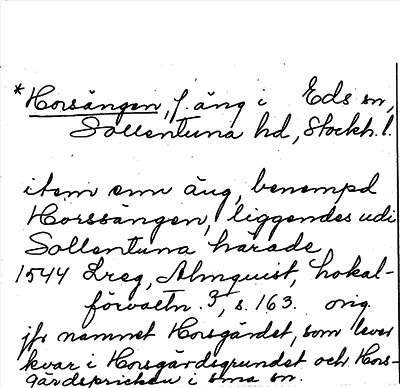 *Horsängen, f. äng i Eds sn,
Sollentuna hd, Stockh. l.
item een äng, benempd
Horssängen, liggendes udi
Sollentuna härade
1544 Lreg, Almquist, Lokal-
förvaltn. 3, s. 163. orig.
jfr namnet Horsgärdet, som lever
kvar i Horsgärdsgrundet och Hors-
gärdspricken i sma sn.